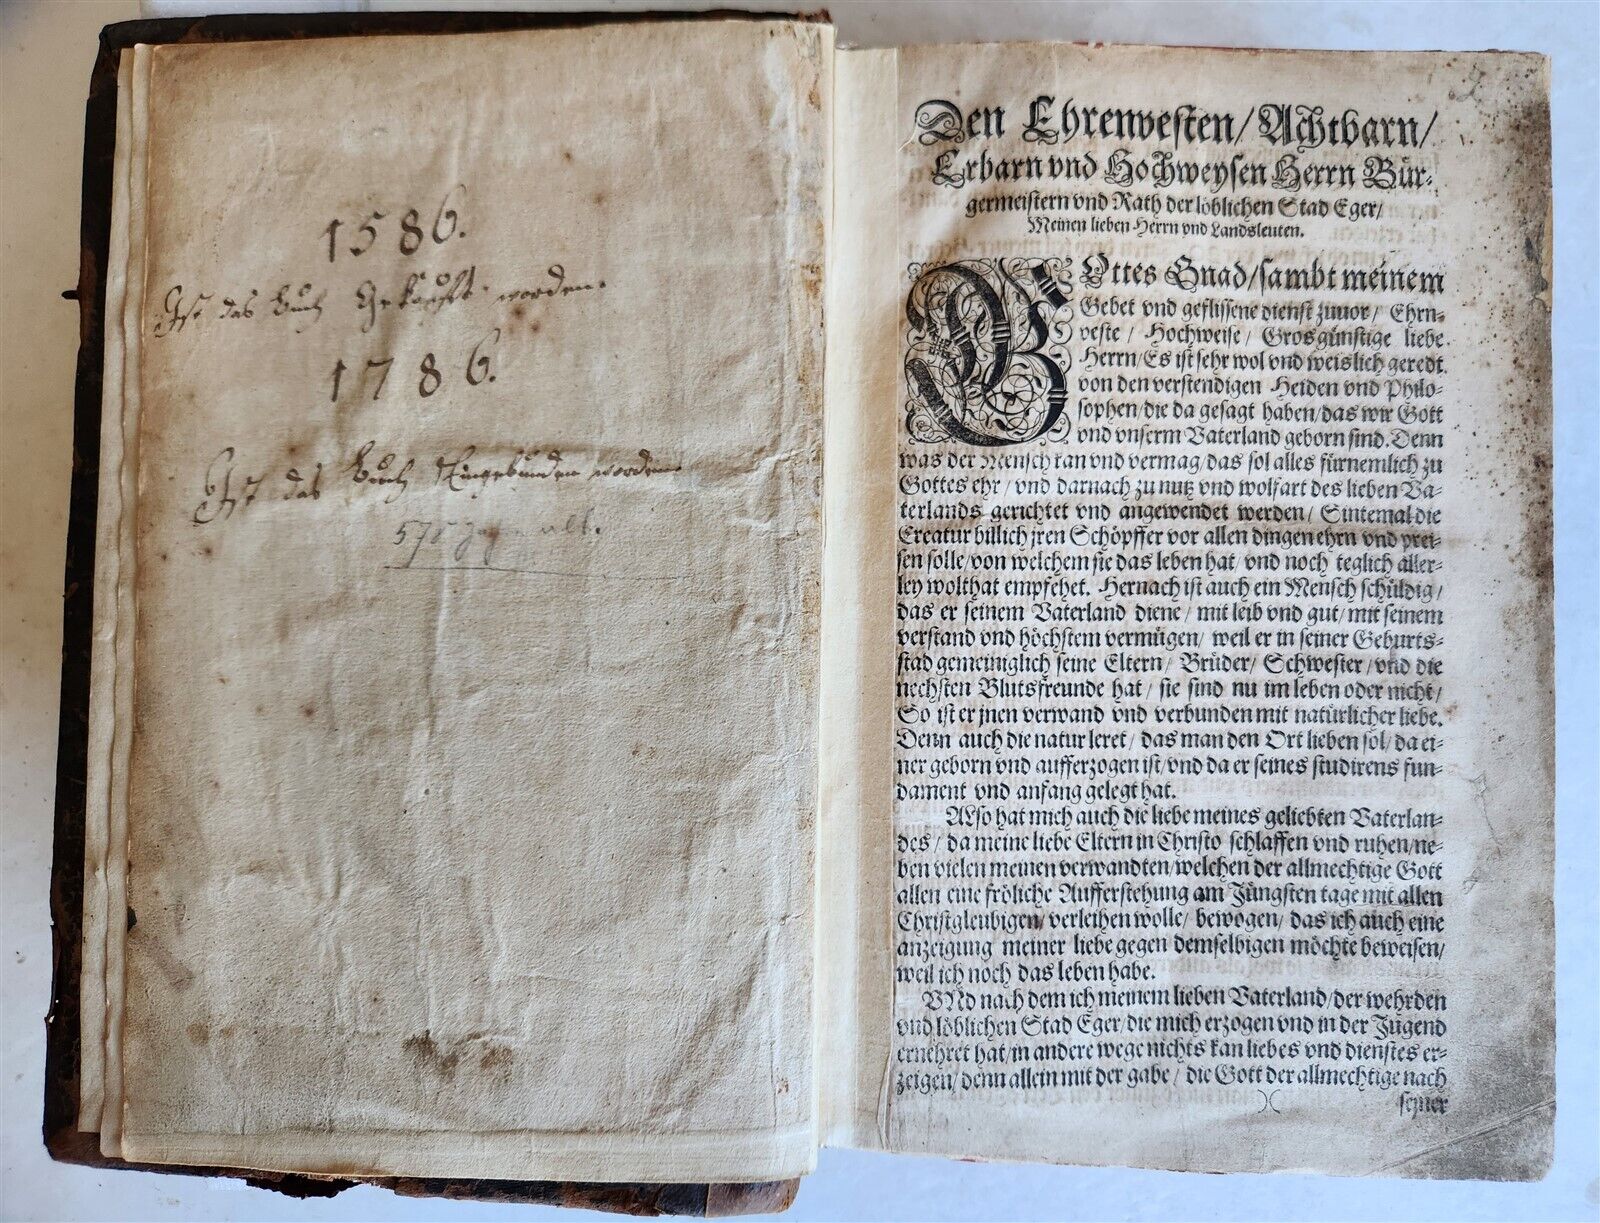 1586.
Ist das buch Gekaufft worden.
1786.
Ist das buch Eingebunden worden
alt.
Den Ehrenvesten/ Achtbarn/
Erbarn vnd Hochweysen Herrn Bür-
germeistern vnd Rath der löblichen Stad Eger/
Meinen lieben Herrn vnd Landsleuten.
GOttes Gnad/ sambt meinem
Gebet vnd geflissene dienst zuuor/ Ehrn-
veste/ Hochweise/ Grosgünstige liebe
Herrn/ Es ist sehr wol vnd weislich geredt
von den verstendigen Heiden vnd Philo-
sophen/ die da gesagt haben/ das wir Gott
vnd vnserm Vaterland geborn sind. Denn
was der Mensch kan vnd vermag/ das sol alles fürnemlich zu
Gottes ehr/ vnd darnach zu nutz vnd wolfart des lieben Va-
terlands gerichtet vnd angewendet werden/ Sintemal die
Creatur billich jren Schöpffer vor allen dingen ehrn vnd prei-
sen solle/ von welchem sie das leben hat/ vnd noch teglich aller-
ley wolthat empfehet. Hernach ist auch ein Mensch schüldig/
das er seinem Vaterland diene/ mit leib vnd gut/ mit seinem
verstand vnd höchstem vermügen/ weil er in seiner Geburts-
stad gemeiniglich seine Eltern/ Brüder/ Schwester/ vnd die
nechsten Blutsfreunde hat/ sie sind nu im leben oder nicht/
So ist er jnen verwand vnd verbunden mit natürlicher liebe.
Denn auch die natur leret/ das man den Ort lieben sol/ da ei-
ner geborn vnd aufferzogen ist/ vnd da er seines studirens fun-
dament vnd anfang gelegt hat.
ALso hat mich auch die liebe meines geliebten Vaterlan-
des/ da meine liebe Eltern in Christo schlaffen vnd ruhen/ ne-
ben vielen meinen verwandten/ welchen der allmechtige Gott
allen eine fröliche Aufferstehung am Jüngsten tage mit allen
Christgleubigen/ verleihen wolle/ bewogen/ das ich auch eine
anzeigung meiner liebe gegen demselbigen möchte beweisen/
weil ich noch das leben habe.
VNd nach dem ich meinem lieben Vaterland/ der wehrden
vnd löblichen Stad Eger/ die mich erzogen vnd in der Jugend
ernehret hat/ in andere wege nichts kan liebes vnd dienstes er-
zeigen/ denn allein mit der gabe/ die Gott der allmechtige nach
)( seiner